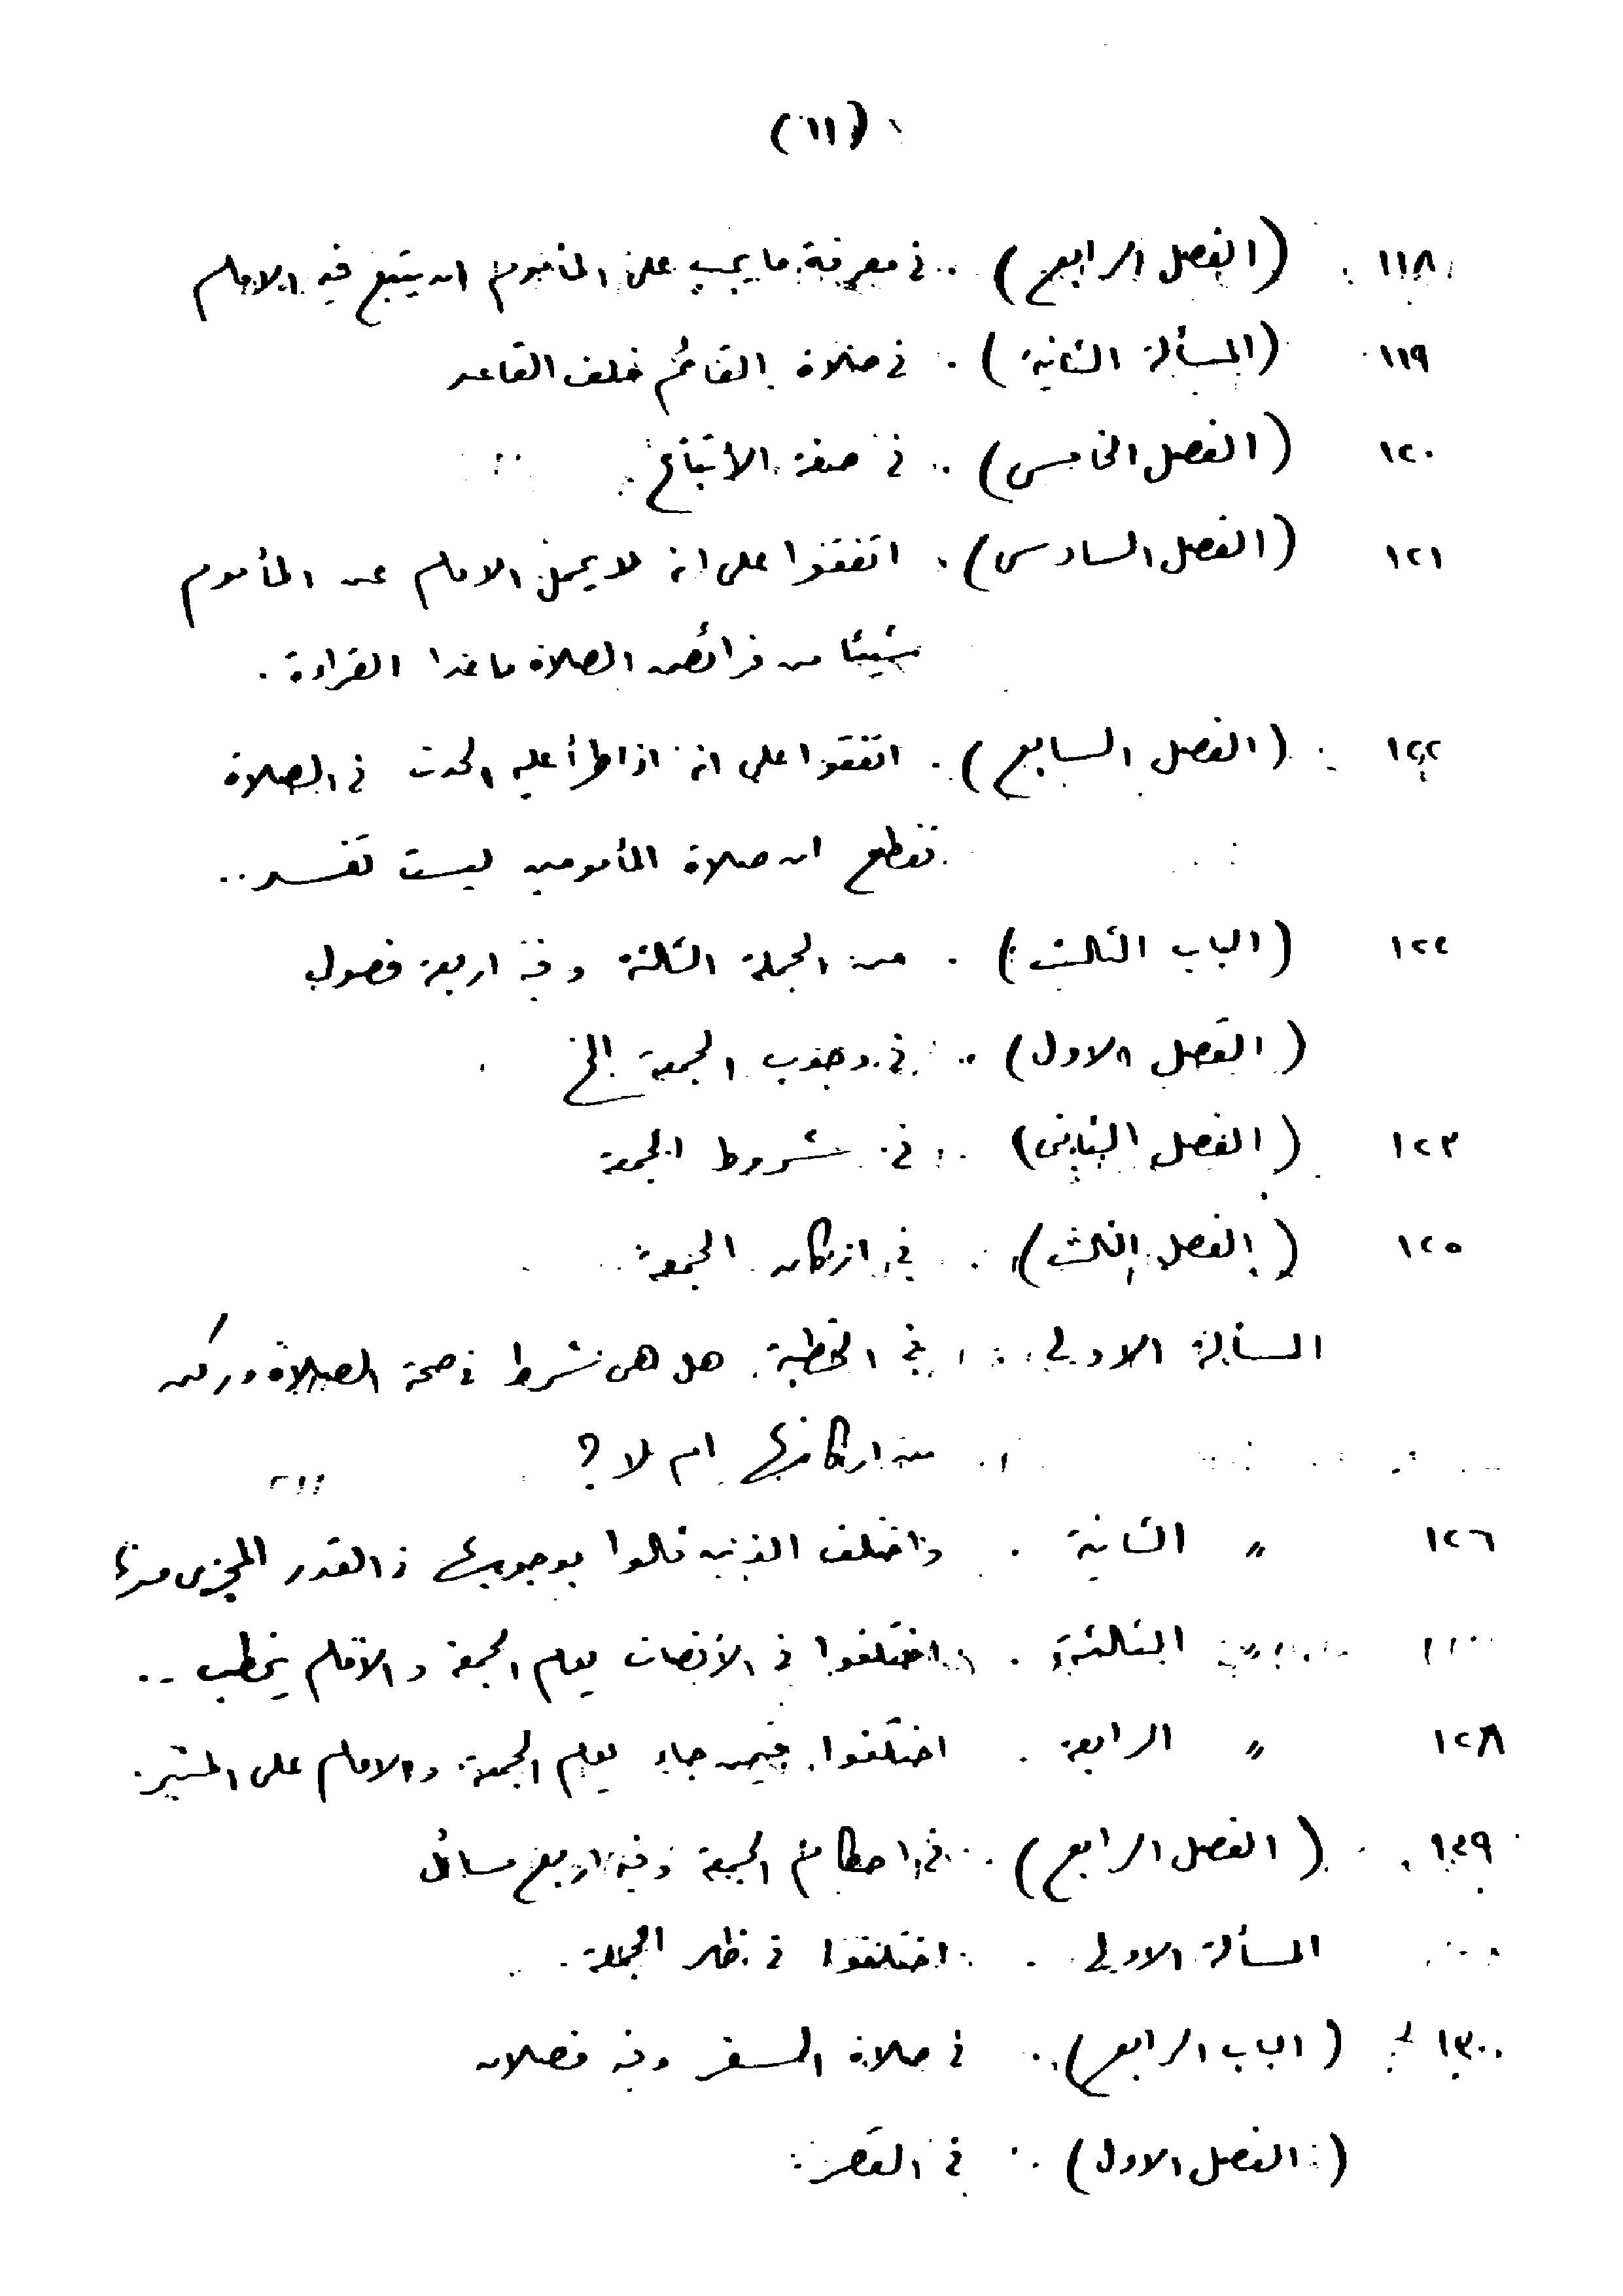 (١١)
١١٨ (الفصل الرابع) . فى معرفة ما يجب على المأموم ان يتبع فيه الامام
١١٩ (المسألة الثانية) . فى صلاة القائم خلف القاعد
١٢٠ (الفصل الخامس) . فى صفة الاتباع
١٢١ (الفصل السادس) . اتفقوا على انه لا يحمل الامام عن المأموم
شيئا من فرائض الصلاة ما عدا القراءة .
١٢٢ (الفصل السابع) . اتفقوا على انه اذا طرأ عليه الحدث فى الصلاة
فقطع ان صلاة المأمومين ليست تفسد ..
١٢٢ (الباب الثالث) . من الجملة الثالثة وفيه اربعة فصول
(الفصل الاول) .. فى وجوب الجمعة الخ
١٢٣ (الفصل الثانى) .. فى شروط الجمعة
١٢٥ (الفصل الثالث) . فى اركان الجمعة
المسألة الاولى . فى الخطبة هل هى شرط فى صحة الصلاة وركن
من اركانها ام لا ؟
١٢٦ " الثانية . واختلف الذين قالوا بوجوبها فى القدر المجزى منها
" الثالثة . اختلفوا فى الانصات يوم الجمعة والامام يخطب ..
١٢٨ " الرابعة . اختلفوا فيمن جاء يوم الجمعة والامام على المنبر .
١٢٩ (الفصل الرابع) .. فى احكام الجمعة وفيه اربع مسائل
المسألة الاولى . اختلفوا فى طهر الجملة .
١٣٠ (الباب الرابع) . فى صلاة السفر وفيه فصلان
(الفصل الاول) . فى القصر